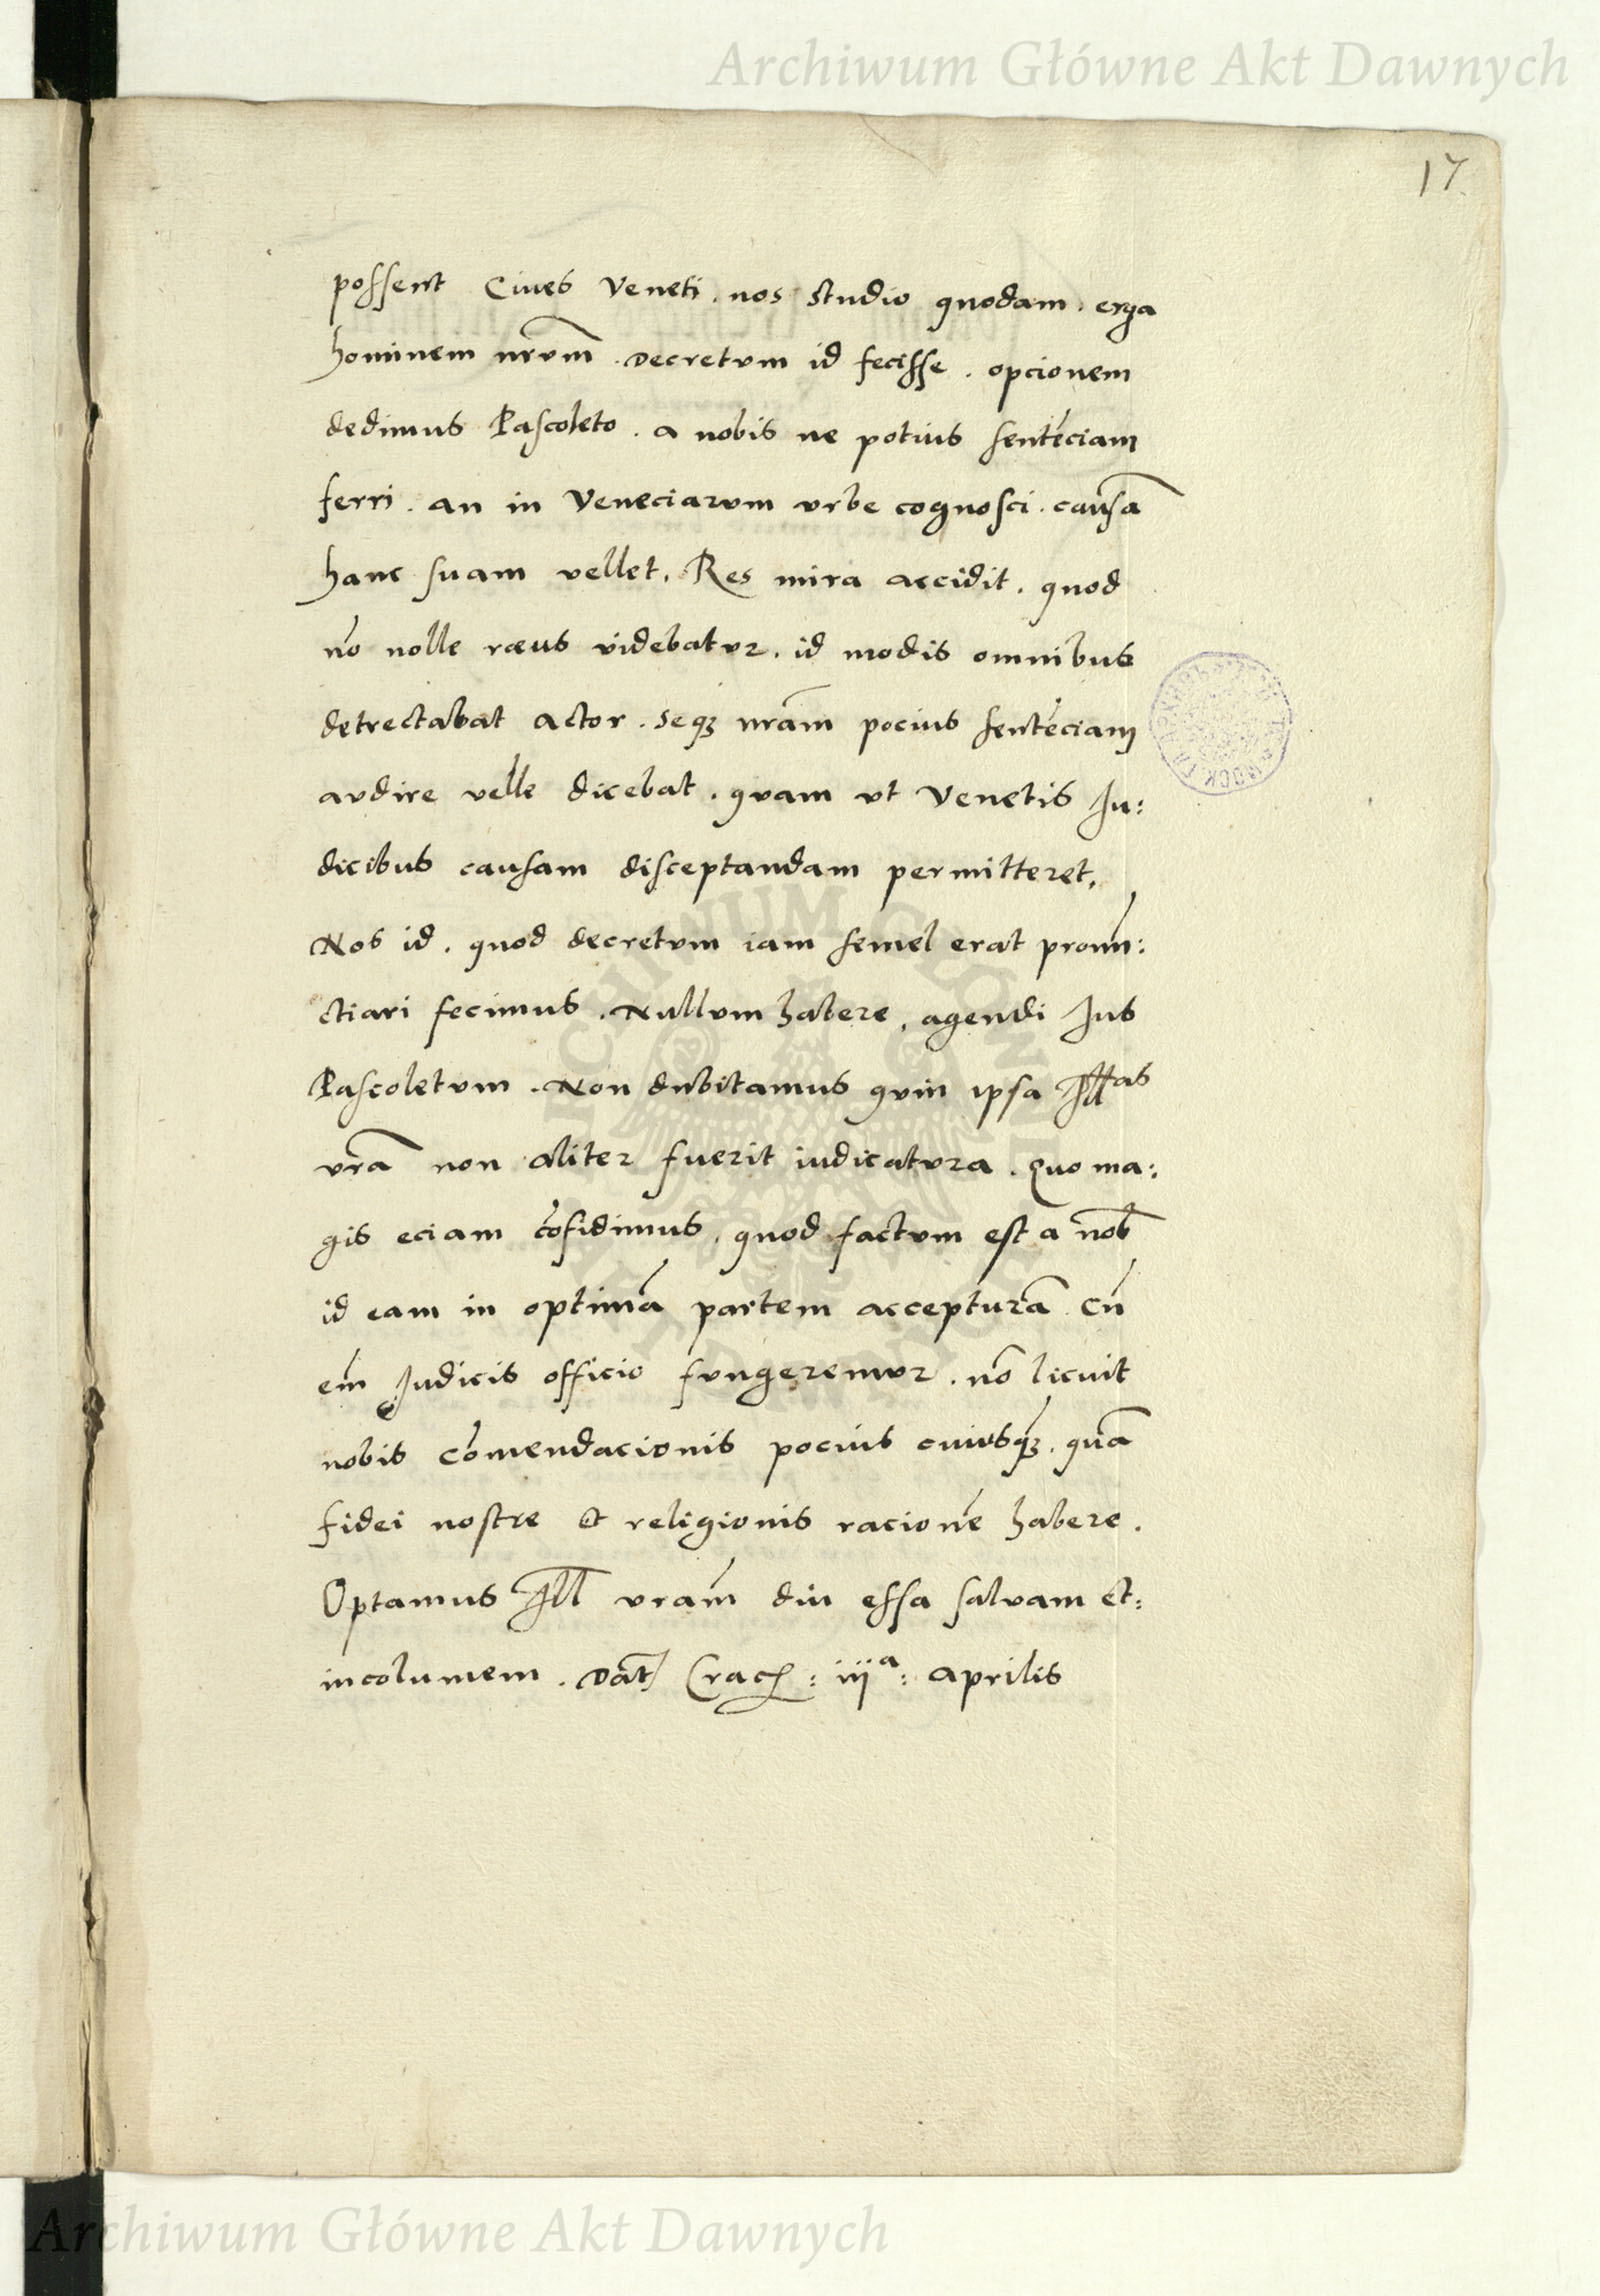 Archiwum Główne Akt Dawnych
17
possent Ciues Veneti . nos studio quodam . erga
hominem nrūm . Decretum id fecisse . opcionem
dedimus Pascoleto . a nobis ne potius senteciam
ferri . an in Veneciarum vrbe cognosci . causā
hanc suam vellet . Res mira accidit . quod
nō nolle ræus videbatur . id modis omnibus
detrectabat actor . seqȝ nrām pocius sentēciam
audire velle dicebat . quam vt Venetis Ju:
dicibus causam disceptandam permitteret .
Nos id . quod decretum iam semel erat pronūn:
ctiari fecimus . Nullum habere . agendi Jus
Pascoletum . Non dubitamus quin ipsa Jll^as
vrā non aliter fuerit iudicatura . Quo ma:
gis eciam cōfidimus . quod factum est a nob̄
id eam in optimā partem accepturā . Cū
em̄ Judicis officio fungeremur . nō licuit
nobis cōmendacionis pocius cuiusqȝ . quā
fidei nostre et religionis racionē habere .
Optamus Jll̄ vrām diu essa saluam et:
incolumem . Dat̄ Crac̄ : iij^a : aprilis
Archiwum Główne Akt Dawnych